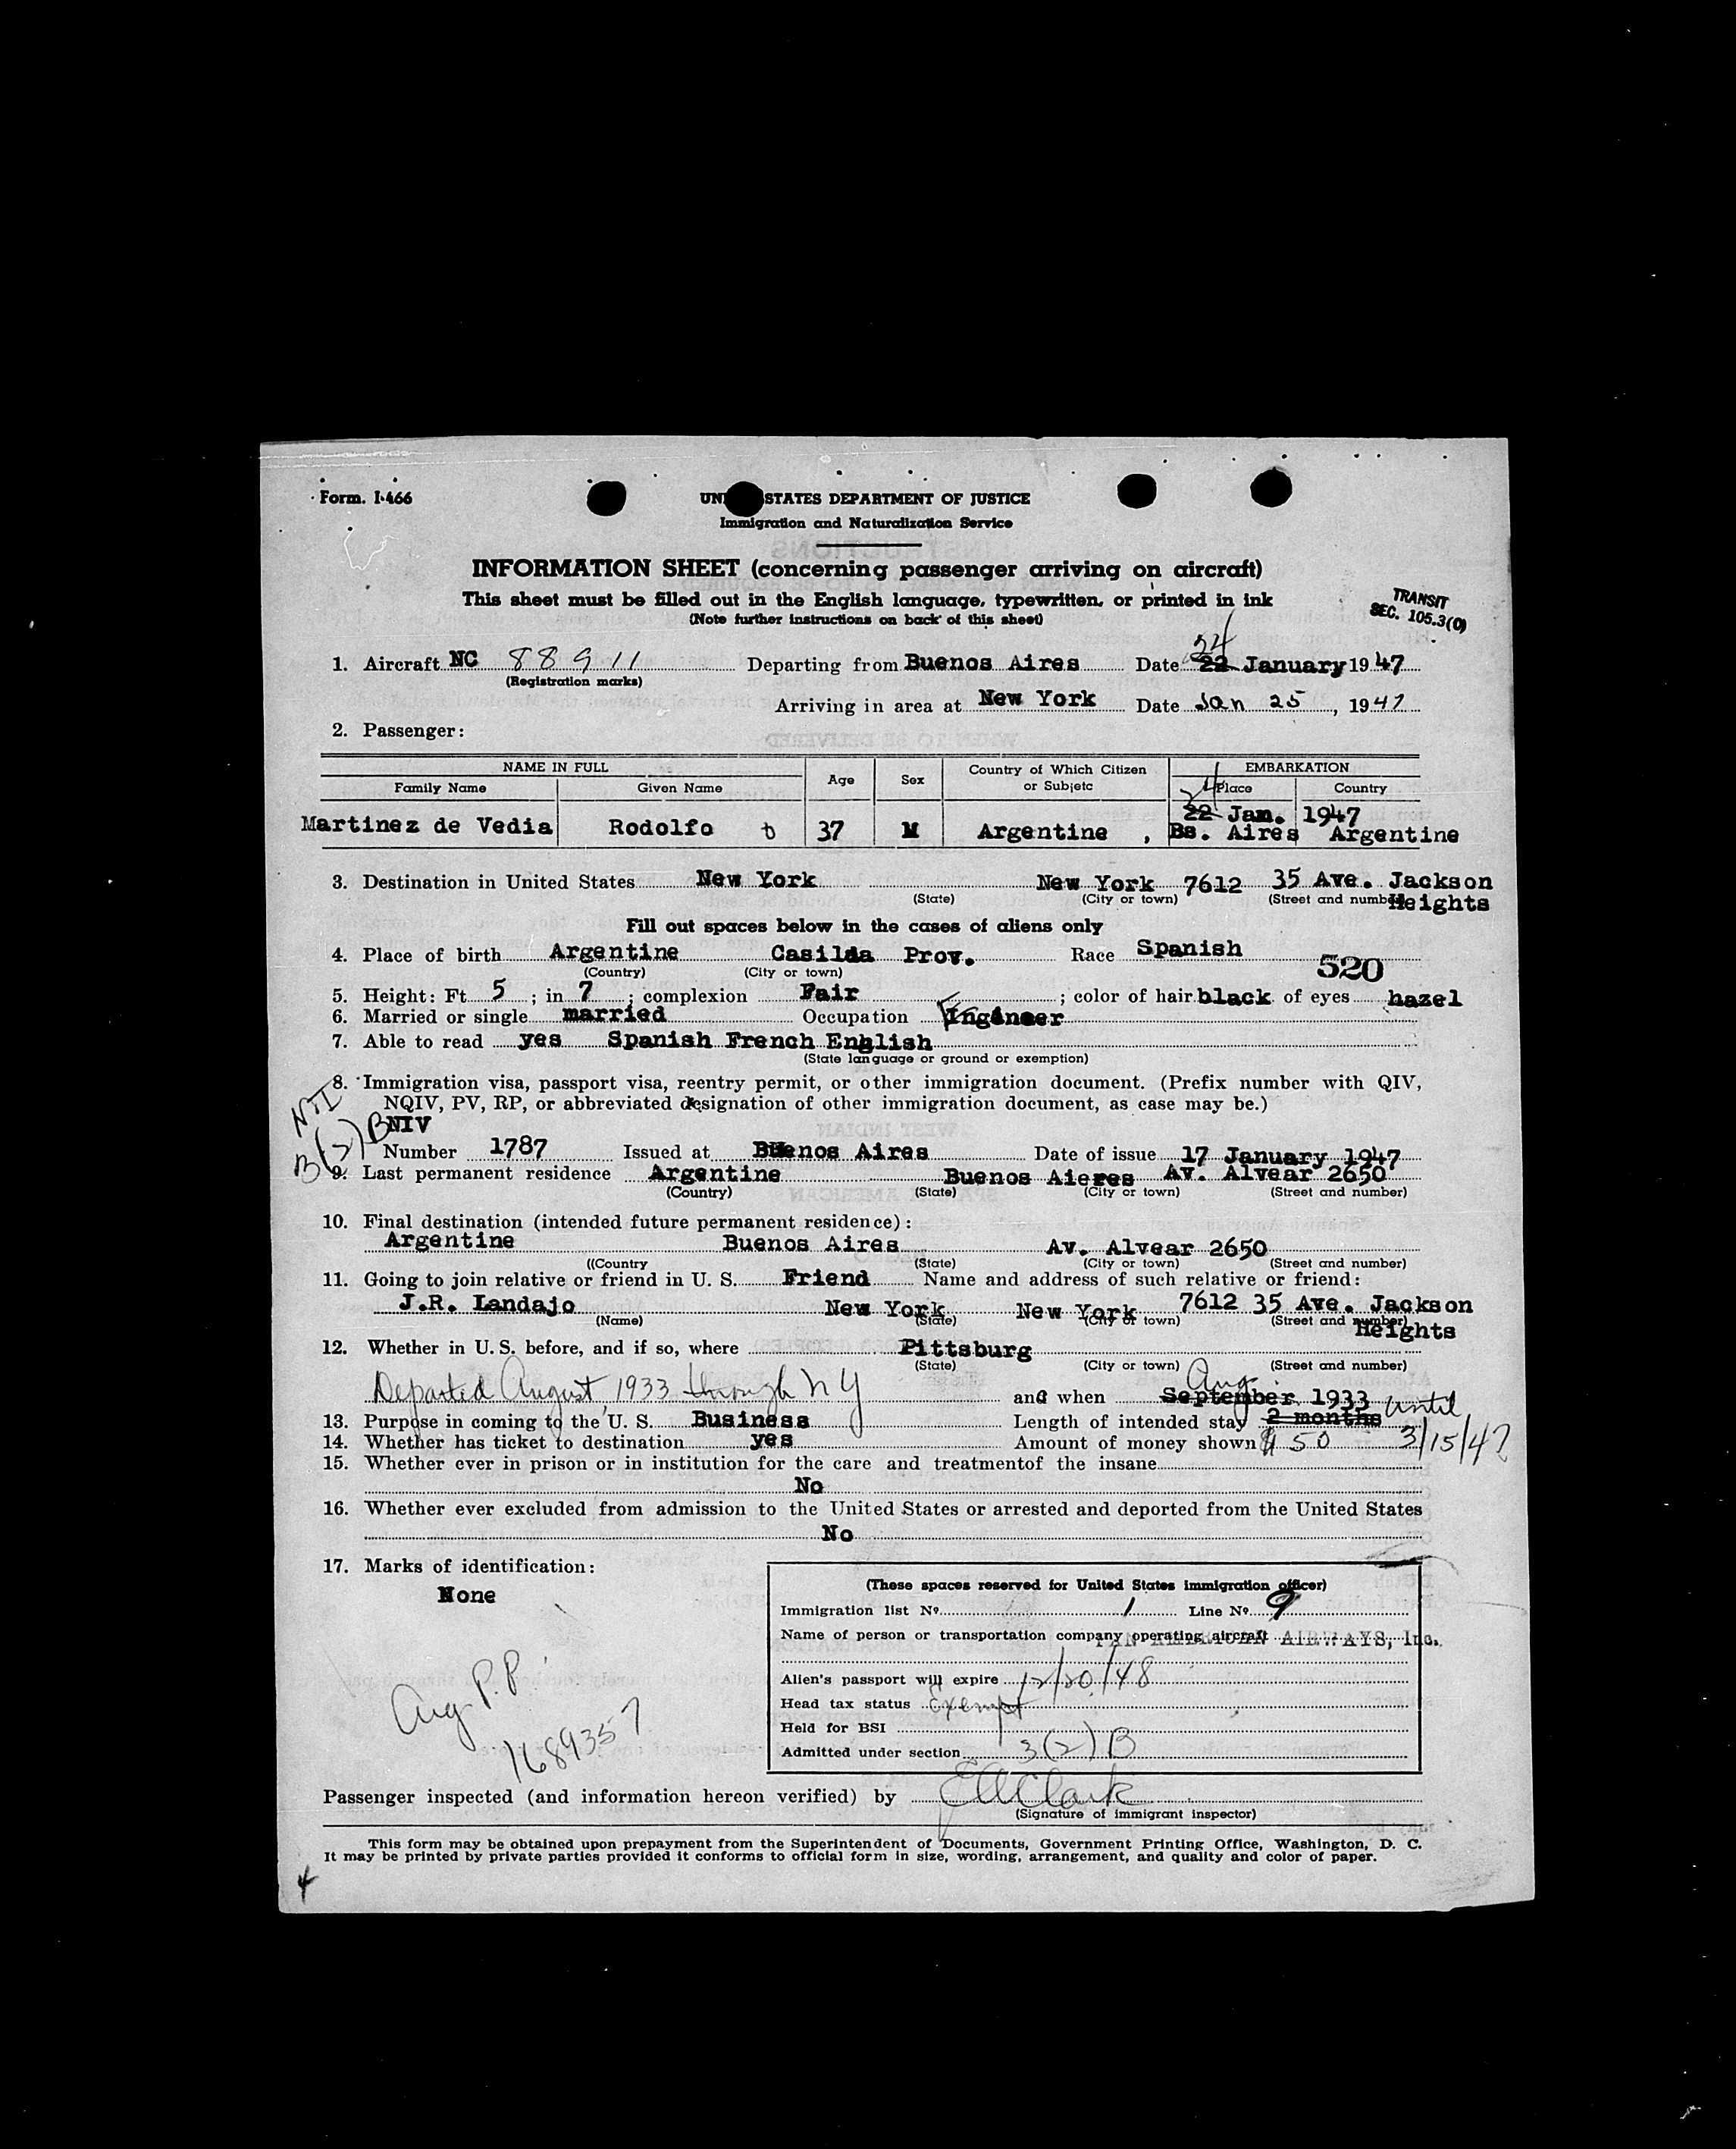 Form. I-466
UN STATES DEPARTMENT OF JUSTICE
Immigration and Naturalization Service
INFORMATION SHEET (concerning passenger arriving on aircraft)
This sheet must be filled out in the English language, typewritten, or printed in ink
(Note further instructions on back of this sheet)
TRANSIT
SEC. 105.3(C)
24
1. Aircraft NC 88911 Departing from Buenos Aires Date 22 January 1947
(Registration marks)
Arriving in area at New York Date Jan 25, 1947
2. Passenger:
NAME IN FULL Age Sex Country of Which Citizen or Subjetc EMBARKATION
Family Name Given Name Place Country
24
22 Jan. 1947
Martinez de Vedia Rodolfo 37 M Argentine , Bs. Aires Argentine
3. Destination in United States New York New York 7612 35 Ave. Jackson
(State) (City or town) (Street and number) Heights
Fill out spaces below in the cases of aliens only
4. Place of birth Argentine Casilda Prov. Race Spanish
(Country) (City or town)
520
5. Height: Ft 5 ; in 7 ; complexion Fair ; color of hair black of eyes hazel
6. Married or single married Occupation Engineer
7. Able to read yes Spanish French English
(State language or ground or exemption)
8. Immigration visa, passport visa, reentry permit, or other immigration document. (Prefix number with QIV,
NQIV, PV, RP, or abbreviated designation of other immigration document, as case may be.)
NIV
Number 1787 Issued at Buenos Aires Date of issue 17 January 1947
9. Last permanent residence Argentine Buenos Aieres Av. Alvear 2650
(Country) (State) (City or town) (Street and number)
10. Final destination (intended future permanent residence):
Argentine Buenos Aires Av. Alvear 2650
((Country (State) (City or town) (Street and number)
11. Going to join relative or friend in U. S. Friend Name and address of such relative or friend:
J.R. Landajo New York New York 7612 35 Ave. Jackson
(Name) (State) (City or town) (Street and number) Heights
12. Whether in U. S. before, and if so, where Pittsburg
(State) (City or town) (Street and number)
Aug
Departed August, 1933 through NY and when September 1933
13. Purpose in coming to the U. S. Business Length of intended stay 2 months until
14. Whether has ticket to destination yes Amount of money shown $50 3/15/47
15. Whether ever in prison or in institution for the care and treatmentof the insane
No
16. Whether ever excluded from admission to the United States or arrested and deported from the United States
No
17. Marks of identification:
None
Arg. P.P.
1689357
(These spaces reserved for United States immigration officer)
Immigration list No. 1 Line No. 9
Name of person or transportation company operating aircraft PAN AMERICAN AIRWAYS, Inc.
Alien's passport will expire 12/20/48
Head tax status Exempt
Held for BSI
Admitted under section 3(2)B
Passenger inspected (and information hereon verified) by EAClark
(Signature of immigrant inspector)
This form may be obtained upon prepayment from the Superintendent of Documents, Government Printing Office, Washington, D. C.
It may be printed by private parties provided it conforms to official form in size, wording, arrangement, and quality and color of paper.
4